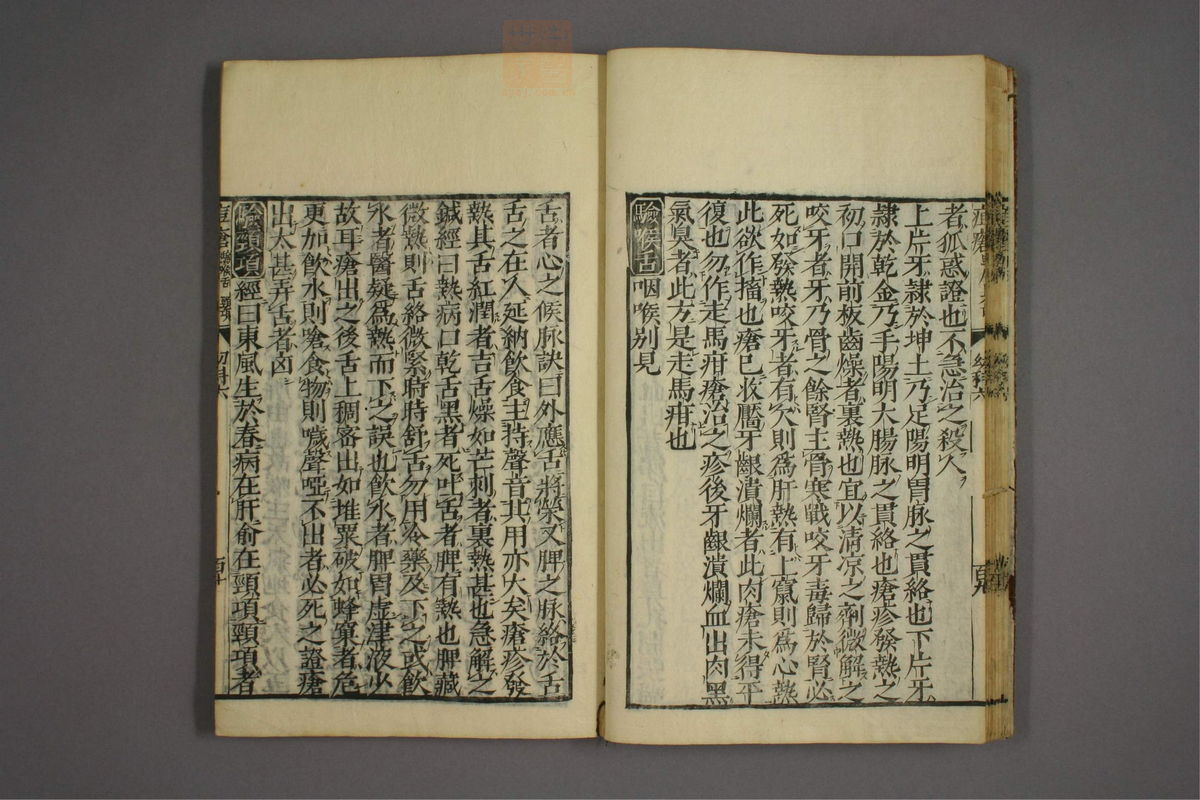 者狐惑證也不急治之殺人
上片牙隸於坤土乃足陽明胃脉之貫絡也下片牙
隸於乾金乃手陽明大腸脉之貫絡也瘡疹發熱之
初口開前板齒燥者裏熱也宜以清凉之劑微解之
咬牙者牙乃骨之餘腎主骨寒戰咬牙毒歸於腎必
死如發熱咬牙者有欠則爲肝熱有上竄則爲心熱
此欲作搐也瘡已收靨牙齦潰爛者此肉瘡未得平
復也勿作走馬疳瘡治之疹後牙齦潰爛血出肉黑
氣臭者此方是走馬疳也
驗喉舌 咽喉别見
舌者心之候脉訣曰外應舌將榮又脾之脉絡於舌
舌之在人延納飲食主持聲音其用亦大矣瘡疹發
熱其舌紅潤者吉舌燥如芒刺者裏熱甚也急解之
鍼經曰熱病口乾舌黑者死吐舌者脾有熱也脾藏
微熱則舌絡微緊時時舒舌勿用冷藥及下之或飲
水者醫疑爲熱而下之誤也飲水者脾胃虛津液少
故耳瘡出之後舌上稠密出如堆粟破如蜂窠者危
更加飲水則嗆食物則噦聲啞不出者必死之證瘡
出太甚弄舌者凶
驗頸項 經曰東風生於春病在肝俞在頸項頸項者